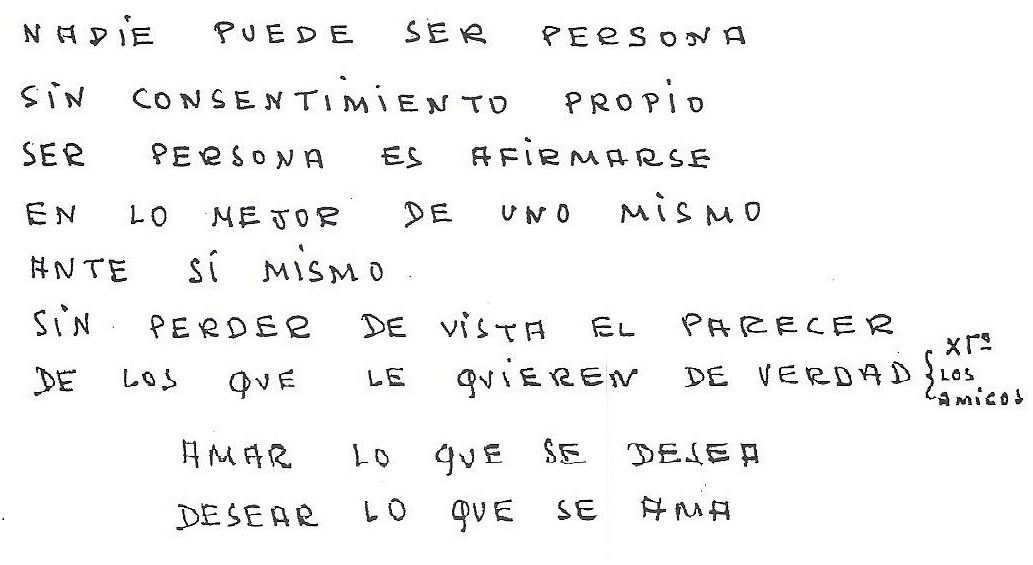 NADiE PUEDE SER PERSONA
SiN CONSENTiMiENTO PROPiO
SER PERSONA ES AFiRMARSE
EN LO MEJOR DE UNO MiSMO
ANTE SÍ MiSMO.
SiN PERDER DE ViSTA EL PARECER
DE LOS QUE LE QUiEREN DE VERDAD { XTº
LOS
AMiGOS
AMAR LO QUE SE DESEA
DESEAR LO QUE SE AMA